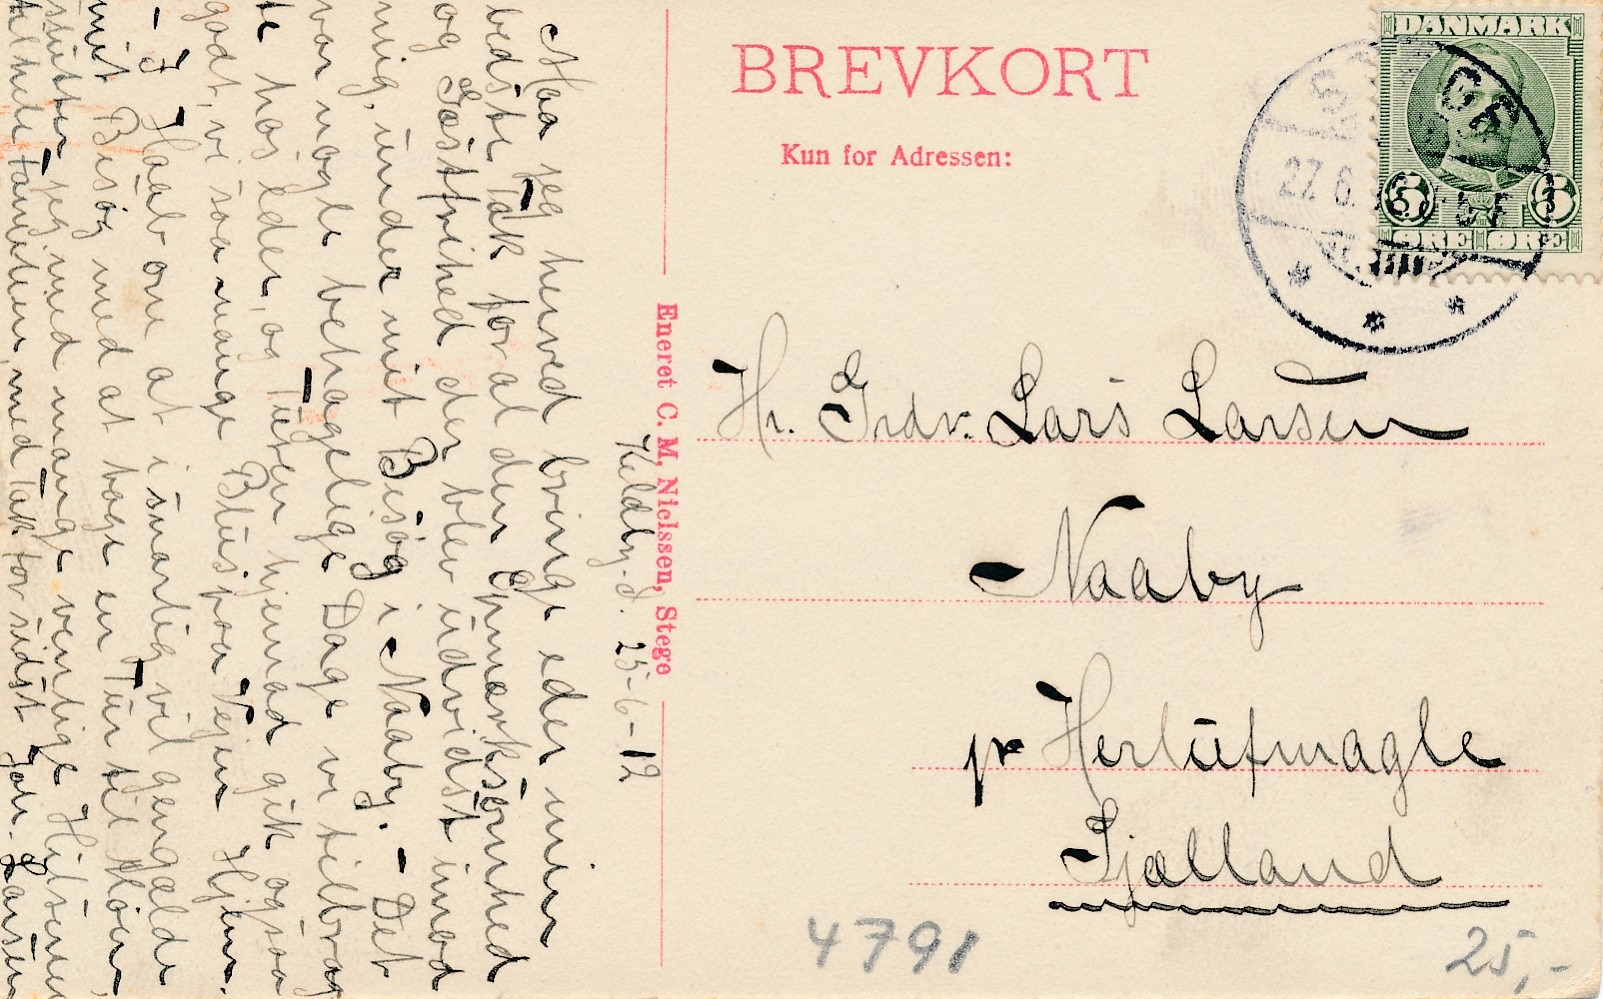 BREVKORT
Kun for Adressen:
DANMARK
5 5
ØRE ØRE
27.6.
Hr. Grdr. Lars Larsen
Naaby
pr Herlufmagle
Sjælland
4791
25,-
Eneret C. M. Nielssen, Stege
Keldby. d. 25-6-12
Maa jeg herved bringe eder min
bedste Tak for al den Opmærksomhed
og Gæstfrihed der blev udvidst imod
mig, under mit Besøg i Naaby. - Det
var nogle behagelige Dage vi tilbrag
te hos eder, og Turen hjemad gik ogsaa
godt, vi saa mange Blus paa Vejen Hjem.
- I Haab om at i snarlig vil gengælde
mit Besøg med at tage en Tur til Møen,
slutter jeg med mange venlige Hilsener
til hele Familien, med Tak for sidst Joh. Larsen